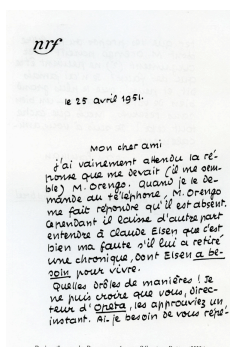 nrf
le 25 avril 1951.
Mon cher ami
j'ai vainement attendu la ré-
ponse que me devait (il me sem-
ble) M. Orengo. Quand je le de-
mande au téléphone, M. Orengo
me fait répondre qu'il est absent.
Cependant il laisse d'autre part
entendre à Claude Elsen que c'est
bien ma faute s'il lui a retiré
une chronique, dont Elsen a be-
soin pour vivre.
Quelles drôles de manières ! Je
ne puis croire que vous, direc-
teur d'Opéra, les approuviez un
instant. Ai-je besoin de vous répé-